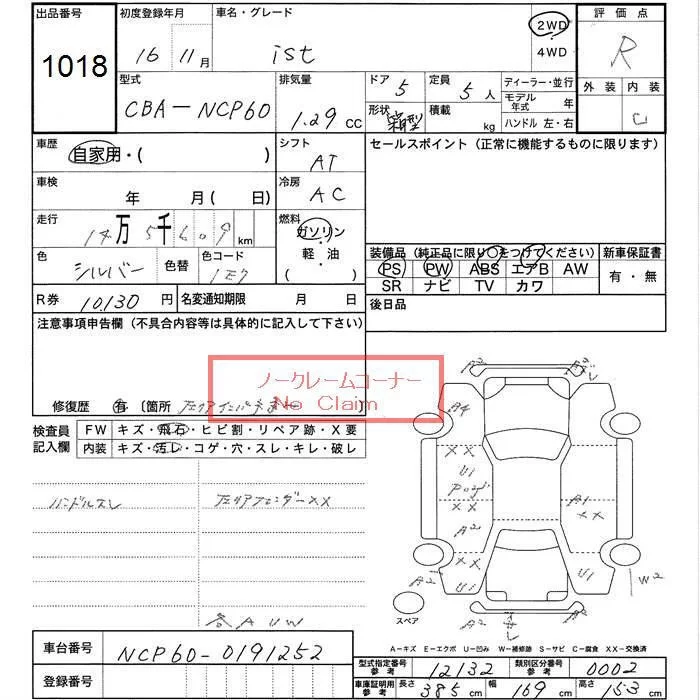 出品番号 初度登録年月 車名・グレード 評価点
1018 16 11月 ist 2WD R
4WD
外装 内装
C
型式 排気量 ドア 定員 ディーラー・並行
CBA-NCP60 1.29 CC 5 5人 モデル年式 年
形状 箱型 積載 kg ハンドル 左・右
車歴 自家用・( ) シフト AT セールスポイント (正常に機能するものに限ります)
車検 年 月( 日) 冷房 AC
走行 14万5千609km 燃料 ガソリン
軽・油
( )
色 シルバー 色替 色コード 1E7
装備品 (純正品に限り○をつけてください) 新車保証書
PS PW ABS エアB AW 有・無
SR ナビ TV カワ
R券 10,130円 名変通知期限 月 日 後日品
注意事項申告欄 (不具合内容等は具体的に記入して下さい)
ノークレームコーナー
No Claim
修復歴 有 〔箇所
検査員記入欄 FW キズ・飛石・ヒビ割・リペア跡・X要
内装 キズ・汚レ・コゲ・穴・スレ・キレ・破レ
ハンドルスレ 左リアフェンダーXX
各AUW
A2
A4
XX
U1
XX
A2
XX
U1
A2
A1
XX
U1
W2
スペア
A-キズ E-エクボ U-凹み W-補修跡 S-サビ C-腐食 XX-交換済
車台番号 NCP60-0191252
登録番号
型式指定番号 参考 12132 類別区分番号 参考 0002
車庫証明用 参考 長さ 385 cm 幅 169 cm 高さ 153 cm